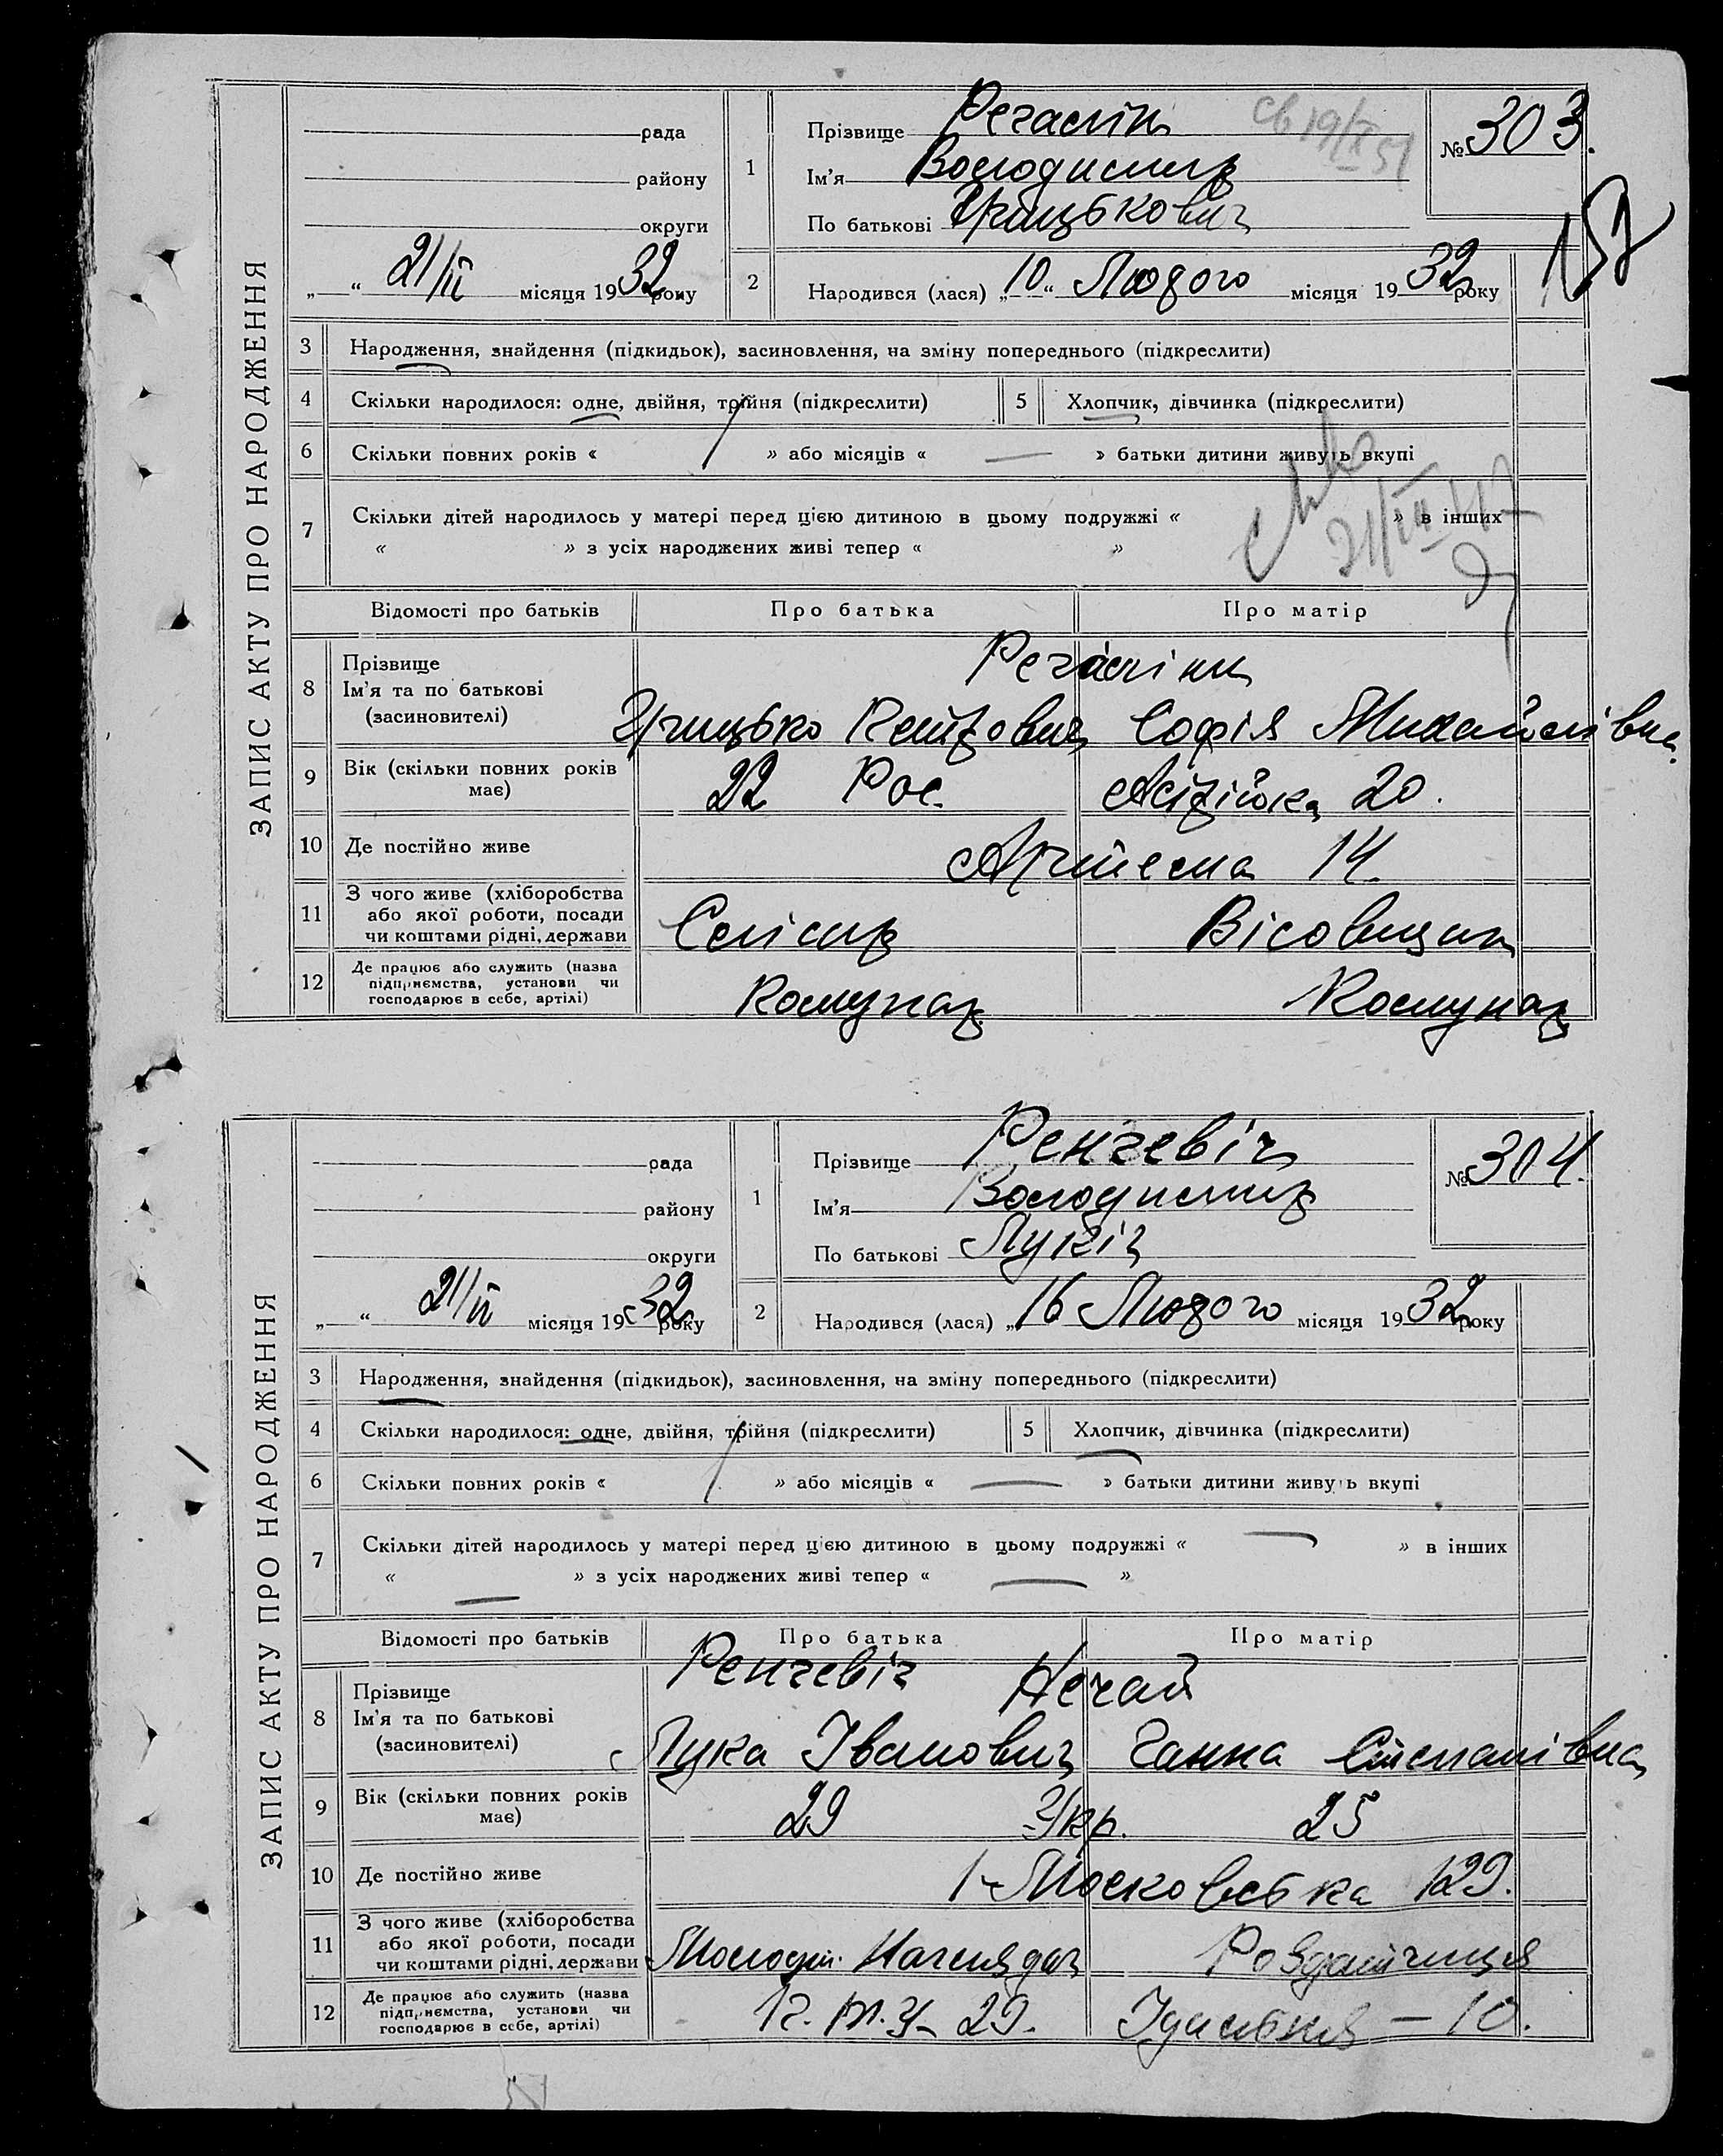 ЗАПИС АКТУ ПРО НАРОДЖЕННЯ
рада
району
округи
„ “ 21/II місяця 1932 року
1
Прізвище Регаслін
Ім'я Володимир
По батькові Грицькович
№ 303.
св 19/X 51
157
2
Народився (лася) „10“ Лютого місяця 1932 року
3 Народження, знайдення (підкидьок), засиновлення, на зміну попереднього (підкреслити)
4 Скільки народилося: одне, двійня, трійня (підкреслити)
5 Хлопчик, дівчинка (підкреслити)
6 Скільки повних років « 1 » або місяців « — » батьки дитини живуть вкупі
7 Скільки дітей народилось у матері перед цією дитиною в цьому подружжі « » в інших
« » з усіх народжених живі тепер « »
Відомості про батьків Про батька Про матір
8 Прізвище
Ім'я та по батькові
(засновителі)
Грицько Софія Михайлівна
9 Вік (скільки повних років має) 22 Рос. 20.
10 Де постійно живе Артема 14.
11 З чого живе (хліборобства або якої роботи, посади чи коштами рідні, держави Слісар Вісовщик
12 Де працює або служить (назва підприємства, установи чи господарює в себе, артілі) Комунар Комунар
ЗАПИС АКТУ ПРО НАРОДЖЕННЯ
рада
району
округи
„ “ 21/II місяця 1932 року
1
Прізвище Ренгевіч
Ім'я Володимир
По батькові Лукіч
№ 304.
2
Народився (лася) „16 Лютого місяця 1932 року
3 Народження, знайдення (підкидьок), засиновлення, на зміну попереднього (підкреслити)
4 Скільки народилося: одне, двійня, трійня (підкреслити)
5 Хлопчик, дівчинка (підкреслити)
6 Скільки повних років « 1 » або місяців « — » батьки дитини живуть вкупі
7 Скільки дітей народилось у матері перед цією дитиною в цьому подружжі « — » в інших
« — » з усіх народжених живі тепер « — »
Відомості про батьків Про батька Про матір
8 Прізвище
Ім'я та по батькові
(засиновителі)
Ренгевіч Нечай
Лука Іванович Ганна Степанівна
9 Вік (скільки повних років має) 29 Укр. 25
10 Де постійно живе 1-Московська 129.
11 З чого живе (хліборобства або якої роботи, посади чи коштами рідні, держави Молодш. Наглядач Роздатчиця
12 Де працює або служить (назва підприємства, установи чи господарює в себе, артілі) 29. Їдальня – 10.